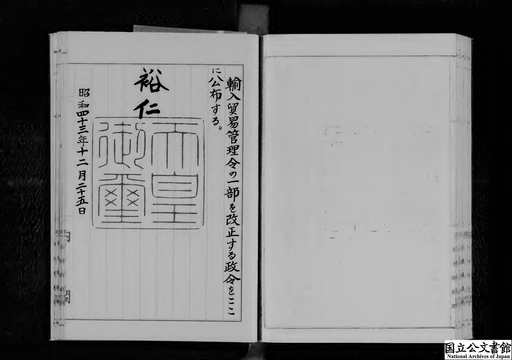 輸入貿易管理令の一部を改正する政令をここ
に公布する。
裕仁
天皇
御璽
昭和四十三年十二月二十五日
内閣
国立公文書館
National Archives of Japan